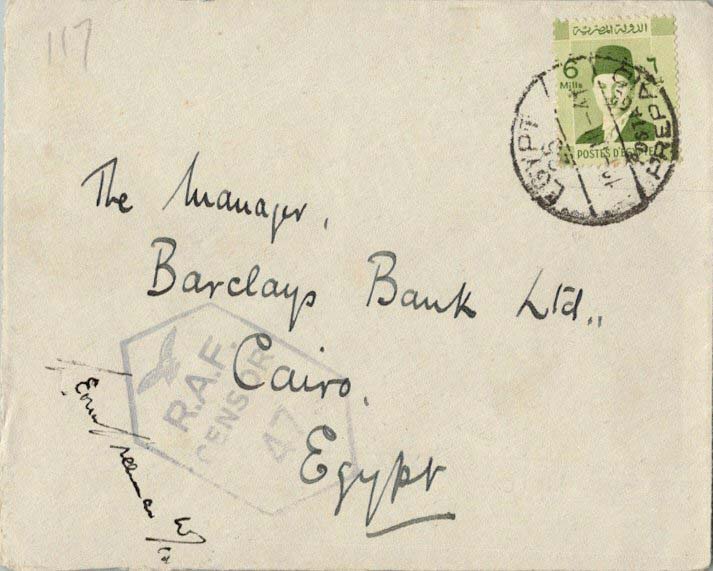 117
الدولة المصرية
6 ٦
Mills
POSTES D'EGYPTE
EGYPT
PREPAID
The Manager,
Barclays Bank Ltd.,
Cairo,
Egypt
R.A.F.
CENSOR
47